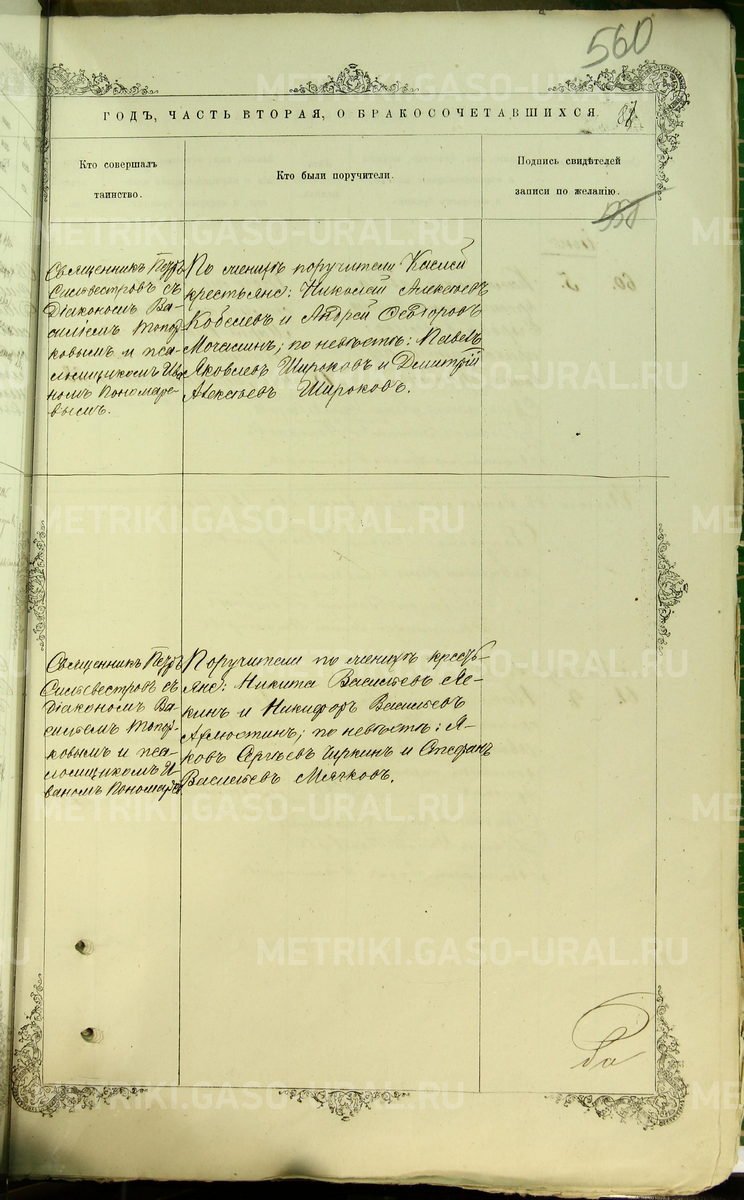 560
ГОДЪ, ЧАСТЬ ВТОРАЯ, О БРАКОСОЧЕТАВШИХСЯ.
Кто совершалъ
таинство.
Кто были поручители.
Подпись свидѣтелей
записи по желанію.
Священникъ Петръ
Сильвестровъ съ
Діакономъ Ва-
силіемъ Топор-
ковымъ и пса-
ломщикомъ Ива-
номъ Пономаре-
вымъ.
По женихѣ поручители
крестьяне: Николай Алексѣевъ
Кобелевъ и Андрей Ѳедоровъ
Мочалинъ; по невѣстѣ: Павелъ
Яковлевъ Широковъ и Дмитрій
Алексѣевъ Широковъ.
Священникъ Петръ
Сильвестровъ съ
Діакономъ Ва-
силіемъ Топор-
ковымъ и пса-
ломщикомъ И-
ваномъ
Поручители по женихѣ кресть-
яне: Никита Васильевъ
и Никифоръ Васильевъ
по невѣстѣ: Я-
ковъ Сергѣевъ Чиркинъ и Стефанъ
Васильевъ Мягковъ.
METRIKI.GASO-URAL.RU